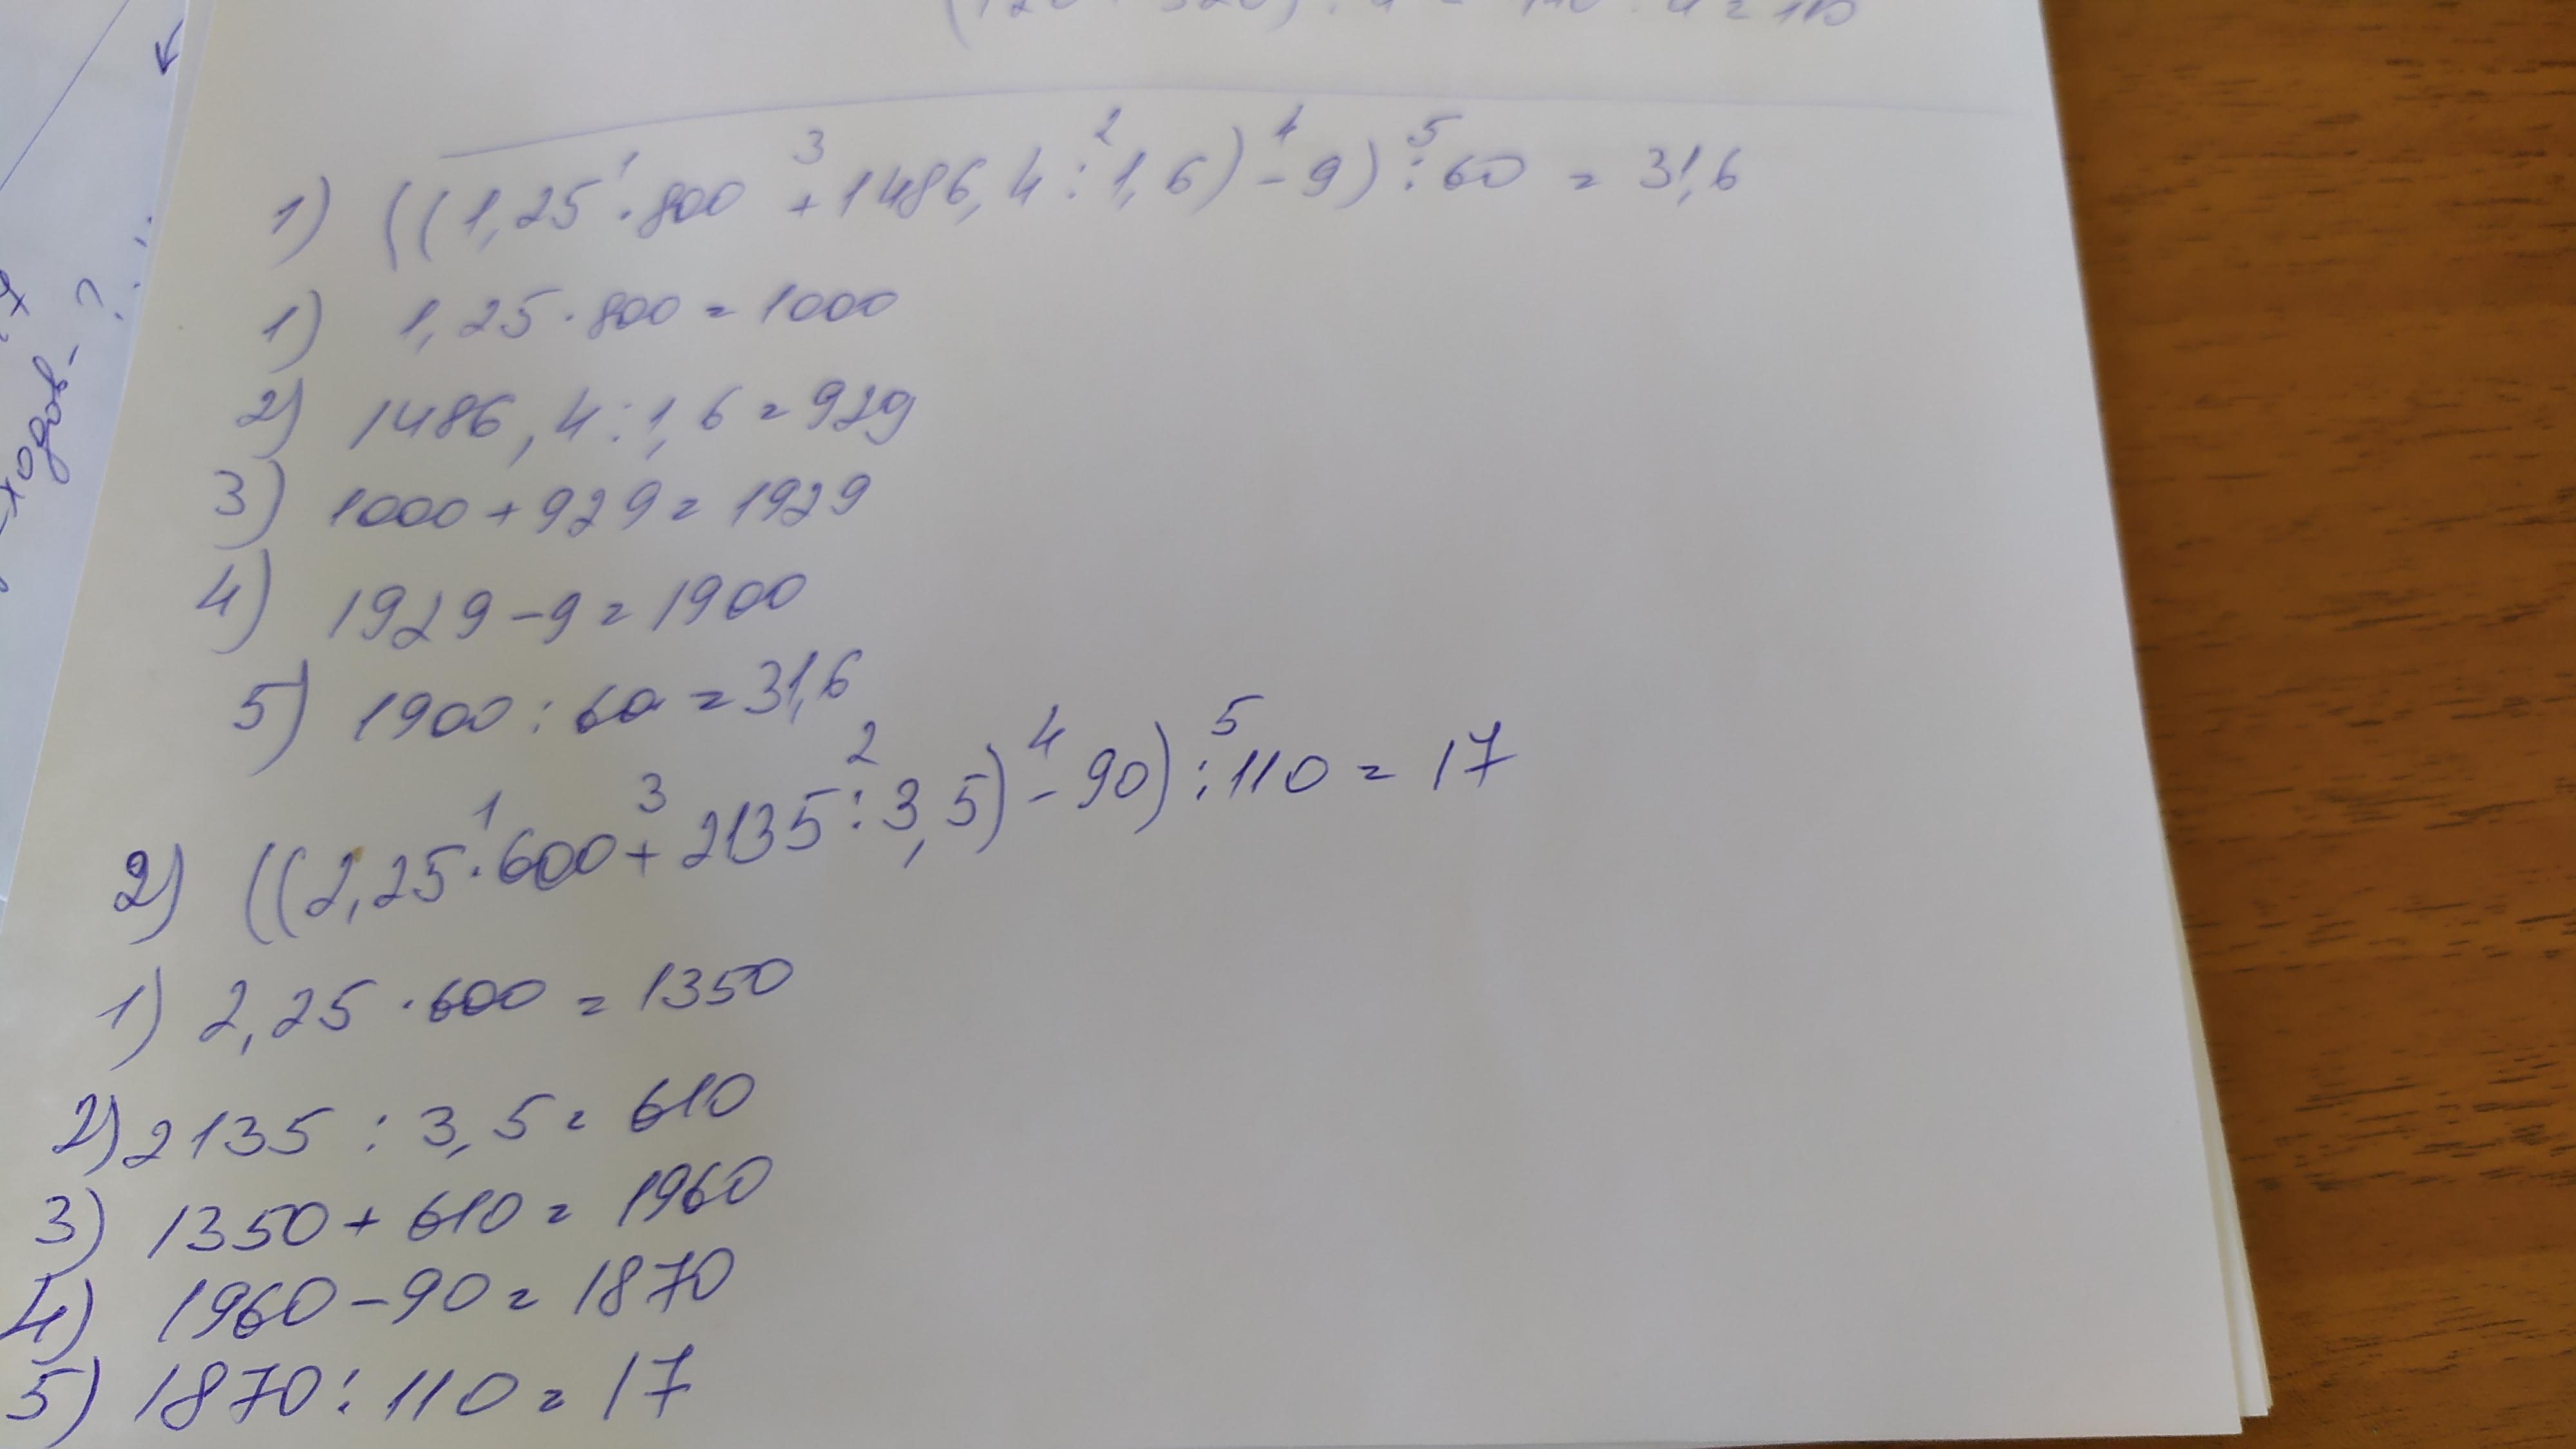 1) ((1,25 · 800 + 1486,4 : 1,6) - 9) : 60 = 31,6
1) 1,25 · 800 = 1000
2) 1486,4 : 1,6 = 929
3) 1000 + 929 = 1929
4) 1929 - 9 = 1900
5) 1900 : 60 = 31,6
2) ((2,25 · 600 + 2135 : 3,5) - 90) : 110 = 17
1) 2,25 · 600 = 1350
2) 2135 : 3,5 = 610
3) 1350 + 610 = 1960
4) 1960 - 90 = 1870
5) 1870 : 110 = 17